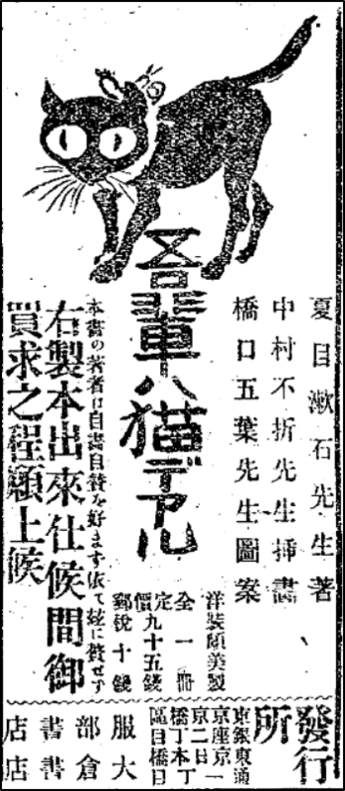 夏目漱石先生著
中村不折先生挿畫
橋口五葉先生圖案
吾輩ハ猫デアル
洋装頗美製
全一冊
定價九十五錢
郵税十錢
本書の著者は自畫自賛を好まず依て玆に賛せず
右製本出來仕候間御
買求之程願上候
發行所
東京京橋區
銀座二丁目
東京日本橋
通一丁目
服部書店
大倉書店